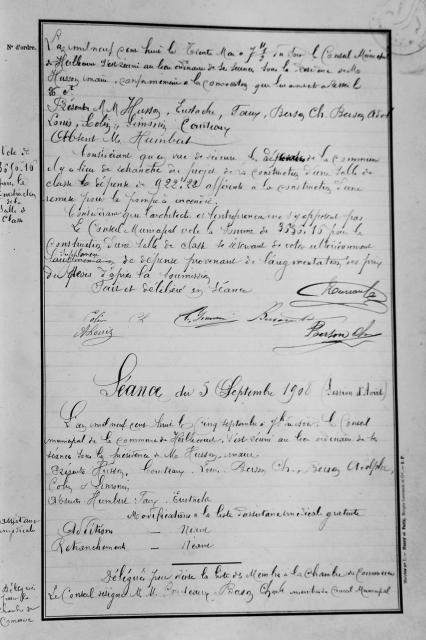 N° d'ordre.
L'an mil neuf cent huit le Trente Mai à 7 h ½ du soir le Conseil Municipal
de Heillecourt s'est réuni au lieu ordinaire de ses séances sous la présidence de Mr
Husson, maire, conformément à la convocation
Présents M M Husson, Eustache, Faux, Berson Ch. Berson Adol
Louis, Colin, Simonin, Couteaux
Absent Mr Humbert
Vote de
3590.10
pour la
Construction
de la
Salle de
Classe
Considérant qu'en vue de réduire les dépenses de la commune
il y a lieu de retrancher du projet de la construction d'une salle de
classe la dépense de 922.28 afférente à la construction d'une
remise pour la pompe à incendie
Considérant que l'architecte et l'entrepreneur ne s'y opposent pas
Le Conseil Municipal vote la somme de 3590.10 pour la
Construction d'une Salle de classe se réservant de voter ultérieurement
le supplément
de dépense provenant de l'augmentation des prix
d'après la soumission
Fait et délibéré en séance
Colin
A Louis
Simonin
Berson Ch
Séance du 5 Septembre 1908 (Session d'Août)
L'an mil neuf cent huit le cinq septembre à 7 h du soir le Conseil
municipal de la commune de Heillecourt s'est réuni au lieu ordinaire de ses
séances sous la présidence de Mr Husson, maire
Présents Husson, Couteaux, Louis, Berson Ch., Berson Adolphe,
Colin et Simonin
Absents Humbert Faux Eustache
assistance
médicale
Modifications à la liste d'assistance médicale gratuite
Addition — Néant
Retranchement — Néant
Délégués
pour la
chambre de
Commerce
Délégués pour élire la liste des Membres à la Chambre de Commerce
Le Conseil désigne M. M. Couteaux, Berson Ch. membres du Conseil Municipal